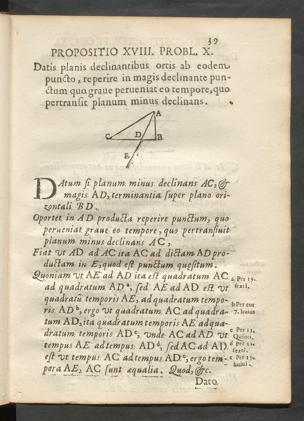 39
PROPOSITIO XVIII. PROBL. X.
Datis planis declinantibus ortis ab eodem
puncto, reperire in magis declinante pun-
ctum quo graue perueniat eo tempore, quo
pertransit planum minus declinans.
A
C D B
E
DAtum si planum minus declinans AC, &
magis AD, terminantia super plano ori-
zontali BD.
Oportet in AD producta reperire punctum, quo
perueniat graue eo tempore, quo pertransiuit
planum minus declinans AC,
Fiat vt AD ad AC ita AC ad dictam AD pro-
ductam in E, quod est punctum quæsitum.
Quoniam vt AE ad AD ita est quadratum AC
ad quadratum AD a, sed AE ad AD est vt
quadratū temporis AE, ad quadratum tempo-
ris AD b, ergo vt quadratum AC ad quadra-
tum AD, ita quadratum temporis AE ad qua-
dratum temporis AD c, vnde AC ad AD vt
tempus AE ad tempus AD d, sed AC ad AD
est vt tempus AC ad tempus AD e, ergo tem-
pora AE, AC sunt æqualia. Quod, &c.
a. Per 19.
sexti.
b. Per
7. huius
c Per 11.
Quinti.
d Per
sexti.
e Per 15.
huius.
Dato